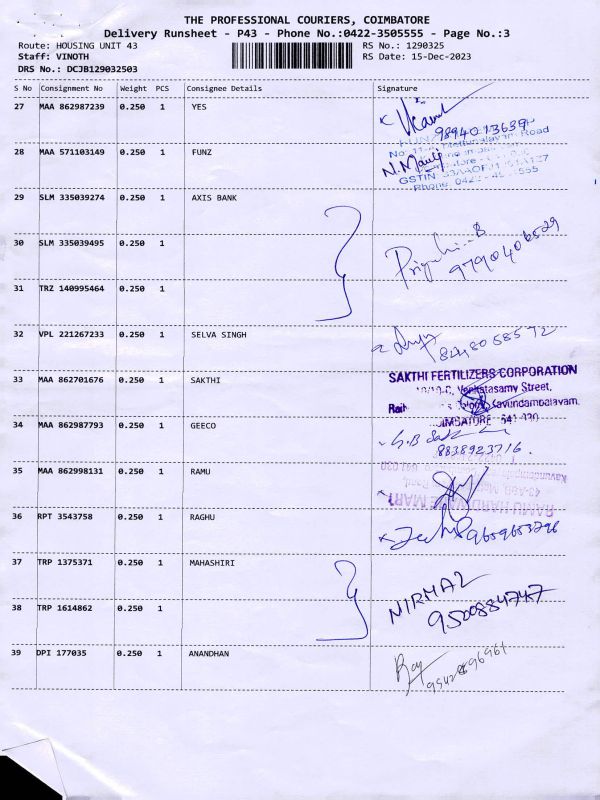 THE PROFESSIONAL COURIERS, COIMBATORE
Delivery Runsheet - P43 - Phone No.:0422-3505555 - Page No.:3
Route: HOUSING UNIT 43 RS No.: 1290325
Staff: VINOTH RS Date: 15-Dec-2023
DRS No.: DCJB129032503
S No Consignment No Weight PCS Consignee Details Signature
27 MAA 862987239 0.250 1 YES
9894013639
28 MAA 571103149 0.250 1 FUNZ
N. Mauli
29 SLM 335039274 0.250 1 AXIS BANK
30 SLM 335039495 0.250 1
9790406529
31 TRZ 140995464 0.250 1
32 VPL 221267233 0.250 1 SELVA SINGH
8248058572
33 MAA 862701676 0.250 1 SAKTHI
SAKTHI FERTILIZERS CORPORATION
Venkatasamy Street,
Kavundampalayam,
COIMBATORE - 641 030
34 MAA 862987793 0.250 1 GEECO
8838923716
35 MAA 862998131 0.250 1 RAMU
RAMU HARDWARE MART
36 RPT 3543758 0.250 1 RAGHU
9659653798
37 TRP 1375371 0.250 1 MAHASHIRI
NIRMAL
9500884747
38 TRP 1614862 0.250 1
39 DPI 177035 0.250 1 ANANDHAN